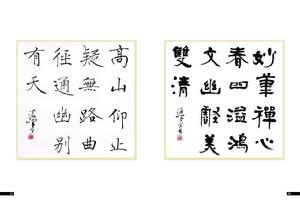 高山仰止
疑無路曲
徑通幽別
有天
妙筆禪心
春四溢鴻
文幽美
雙清